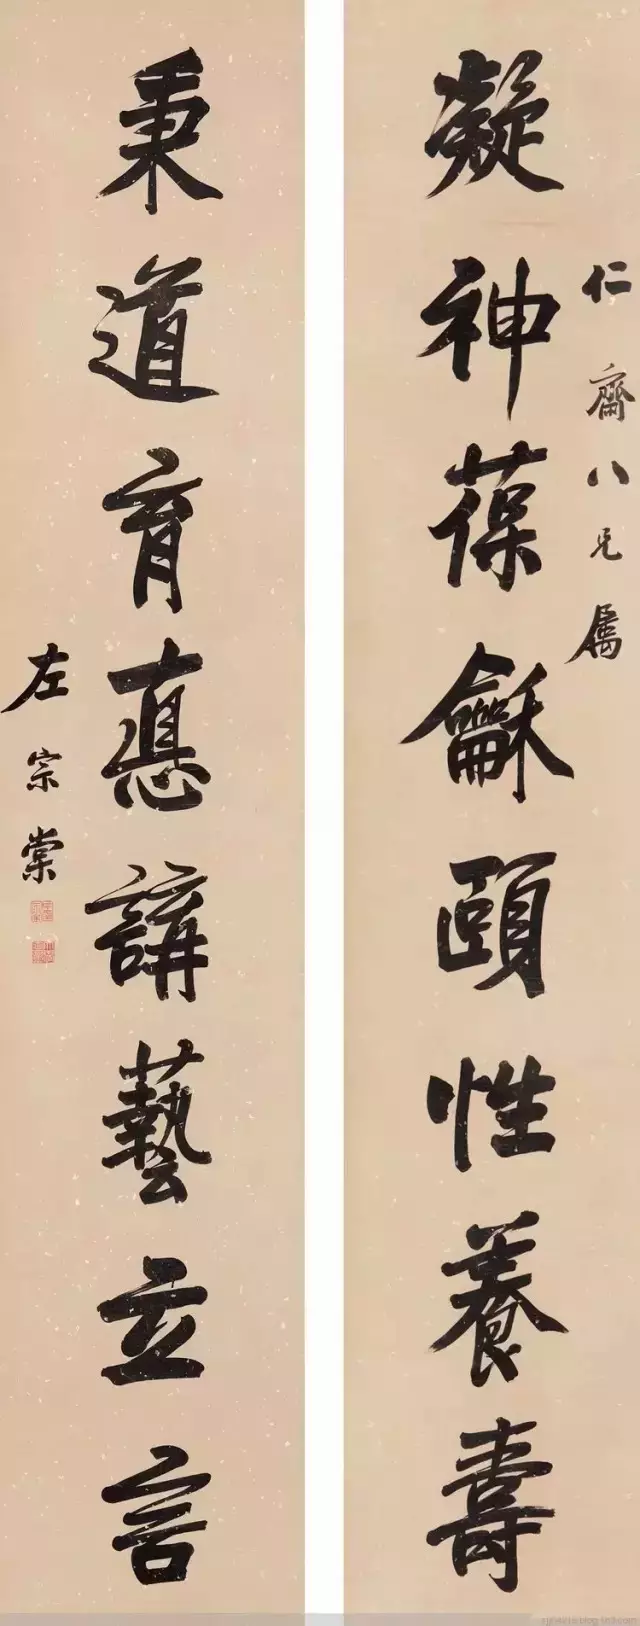 仁齋八兄属
凝神葆龢頤性養壽
秉道育悳講藝立言
左宗棠